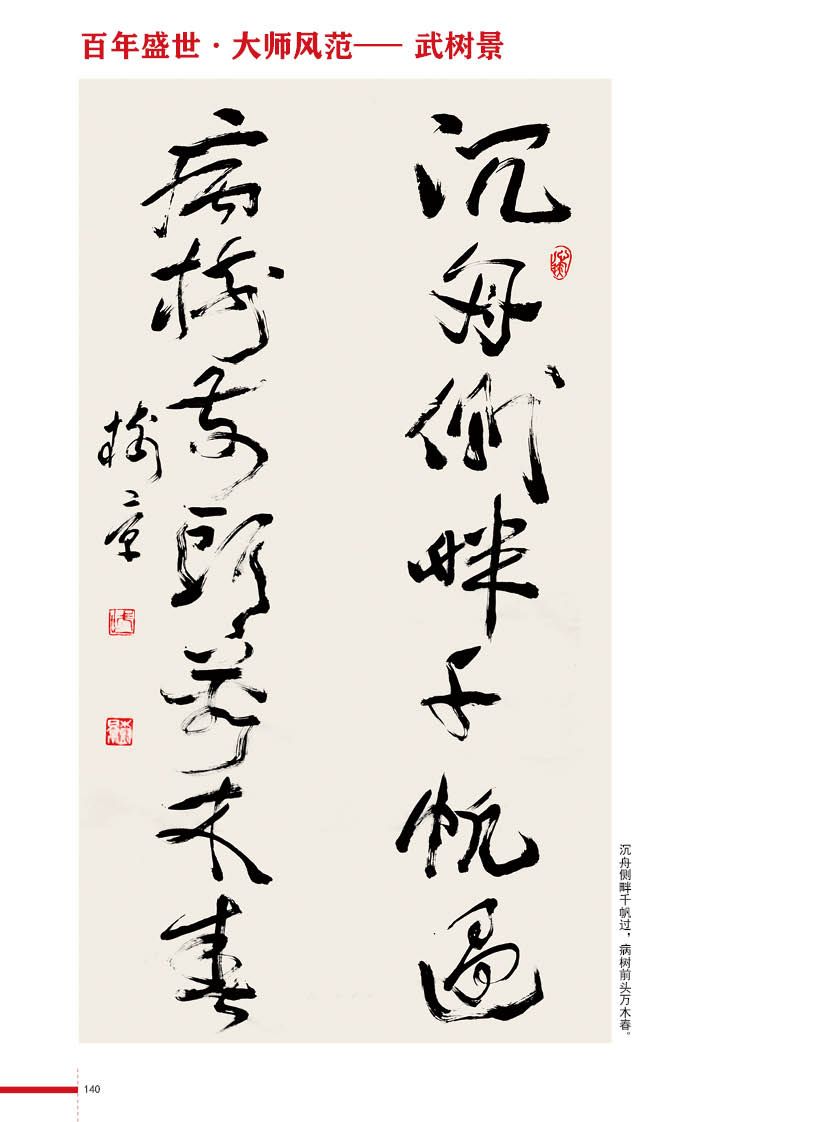 百年盛世·大师风范—— 武树景
沉舟側畔千帆過
病樹前頭萬木春
樹景
沉舟侧畔千帆过，病树前头万木春。
140